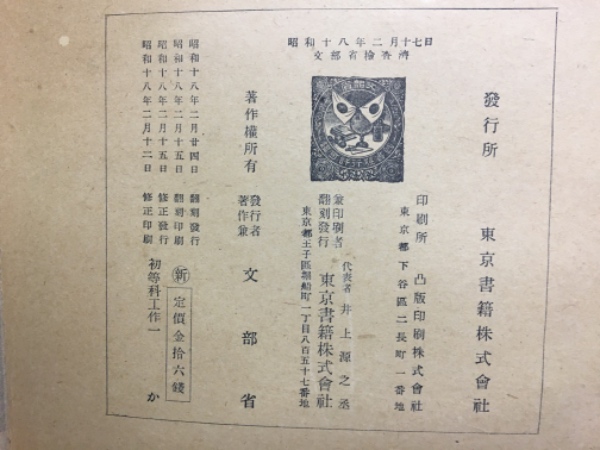 昭和十八年二月十七日
文部省檢查濟
發行所　東京書籍株式會社
印刷所　凸版印刷株式會社
東京都下谷區二長町一番地
兼印刷者
翻刻發行
東京書籍株式會社
代表者　井上源之丞
東京都王子區堀船町一丁目八百五十七番地
著作權所有
著作兼
發行者
文部省
昭和十八年二月廿四日　翻刻發行
昭和十八年二月十五日　翻刻印刷
昭和十八年二月十五日　修正發行
昭和十八年二月十二日　修正印刷
新　定價金拾六錢
初等科工作一　か